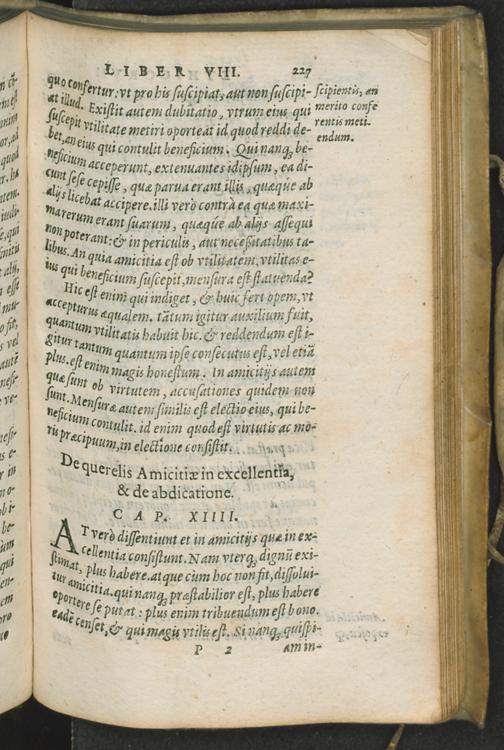 LIBER VIII. 227
quo confertur: vt pro his suscipiat, aut non suscipi-
at illud. Existit autem dubitatio, vtrum eius qui
suscepit vtilitate metiri oporteat id quod reddi de-
bet, an eius qui contulit beneficium. Qui nanq; be-
neficium acceperunt, extenuantes id ipsum, ea di-
cunt sese cepisse, quæ parua erant illis, quæque ab
alijs licebat accipere. illi verò contrà ea quæ maxi-
ma rerum erant suarum, quæqué ab alijs assequi
non poterant: & in periculis, aut necessitatibus ta-
libus. An quia amicitia est ob vtilitatem, vtilitas e-
ius qui beneficium suscepit, mensura est statuenda?
Hic est enim qui indiget, & huic fert opem, vt
accepturus æqualem. tātum igitur auxilium fuit,
quantum vtilitatis habuit hic. & reddendum est i-
gitur tantum quantum ipse consecutus est, vel etiā
plus. est enim magis honestum. In amicitijs autem
quæ sunt ob virtutem, accusationes quidem non
sunt. Mensuræ autem similis est electio eius, qui be-
neficium contulit. id enim quod est virtutis ac mo-
ris præcipuum, in electione consistit.
scipientis, an
merito confe
rentis meti-
endum.
De querelis Amicitiæ in excellentia,
& de abdicatione.
CAP. XIIII.
AT verò dissentiunt et in amicitijs quæ in ex-
cellentia consistunt. Nam vterq; dignū exi-
stimat, plus habere. atque cùm hoc non fit, dissolui-
tur amicitia. qui nanq; præstabilior est, plus habere
oportere se putat: plus enim tribuendum est bono.
eadē censet, & qui magis vtilis est. Si nanq; quispi-
P 2 am in-